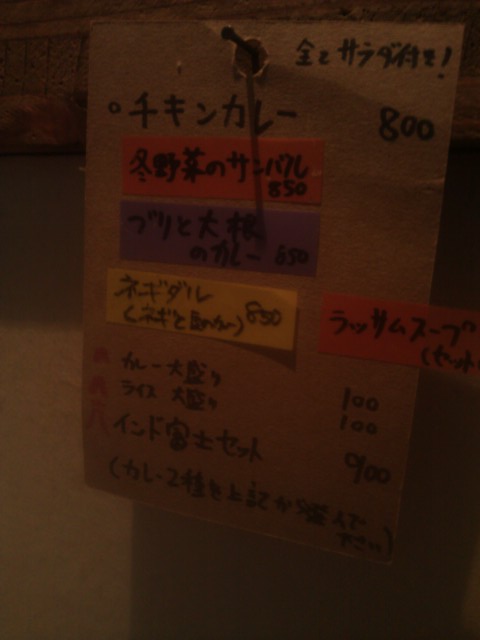 全てサラダ付で!
。チキンカレー 800
冬野菜のサンバル
850
ブリと大根
のカレー 850
ネギダル
(ネギと豆のカレー) 850
ラッサムスープ
(セット
カレー大盛り 100
ライス大盛り 100
インド富士セット 900
(カレー2種を上記から選んで
下さい)